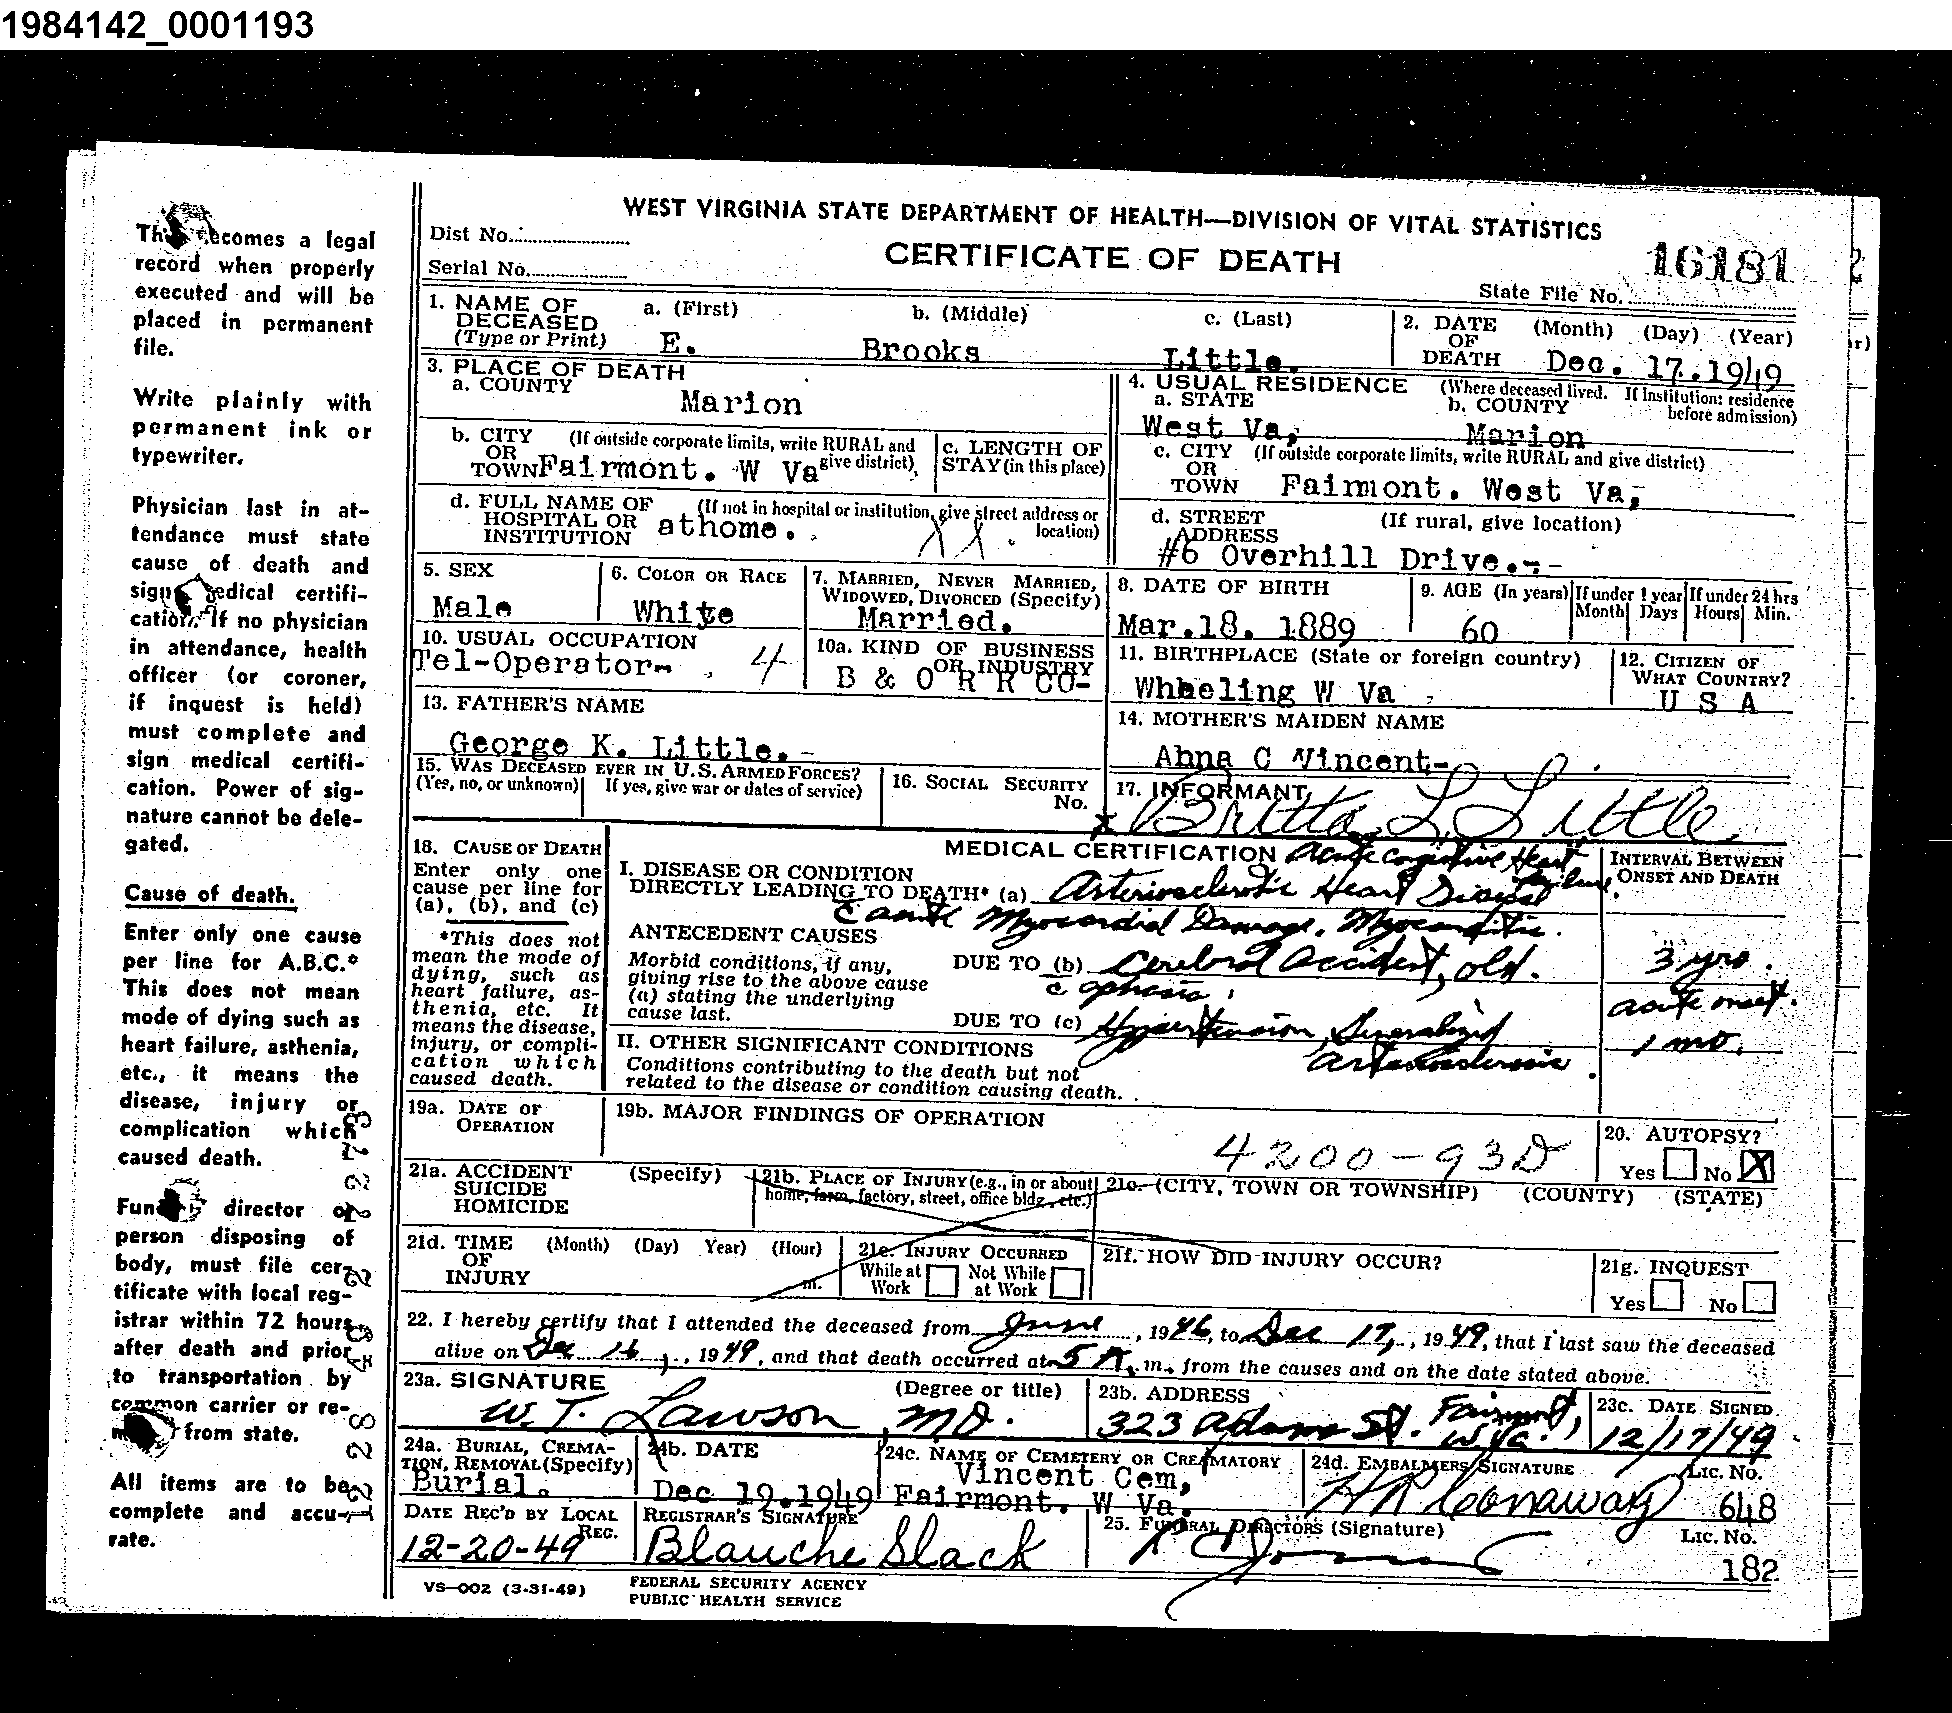 1984142_0001193
WEST VIRGINIA STATE DEPARTMENT OF HEALTH—DIVISION OF VITAL STATISTICS
CERTIFICATE OF DEATH
Dist No.
Serial No.
16181
State File No.
1. NAME OF DECEASED (Type or Print) a. (First) b. (Middle) c. (Last)
E. Brooks Little.
2. DATE OF DEATH (Month) (Day) (Year)
Dec. 17.1949
3. PLACE OF DEATH
a. COUNTY
Marion
b. CITY OR TOWN (If outside corporate limits, write RURAL and give district)
Fairmont. W Va
c. LENGTH OF STAY (in this place)
d. FULL NAME OF HOSPITAL OR INSTITUTION (If not in hospital or institution, give street address or location)
athome. XX.
4. USUAL RESIDENCE (Where deceased lived. If Institution: residence before admission)
a. STATE
West Va,
b. COUNTY
Marion
c. CITY OR TOWN (If outside corporate limits, write RURAL and give district)
Faimont. West Va,
d. STREET ADDRESS (If rural, give location)
#6 Overhill Drive.--
5. SEX
Male
6. COLOR OR RACE
White
7. MARRIED, NEVER MARRIED, WIDOWED, DIVORCED (Specify)
Married.
8. DATE OF BIRTH
Mar.18. 1889
9. AGE (In years)
60
If under 1 year Month Days
If under 24 hrs Hours Min.
10. USUAL OCCUPATION
Tel-Operator- 4
10a. KIND OF BUSINESS OR INDUSTRY
B & O R R CO-
11. BIRTHPLACE (State or foreign country)
Wheeling W Va
12. CITIZEN OF WHAT COUNTRY?
U S A
13. FATHER'S NAME
George K. Little.-
14. MOTHER'S MAIDEN NAME
Anna C Vincent-
15. WAS DECEASED EVER IN U.S. ARMED FORCES?
(Yes, no, or unknown) If yes, give war or dates of service)
16. SOCIAL SECURITY No.
17. INFORMANT
x Britta L. Little
18. CAUSE OF DEATH
Enter only one cause per line for (a), (b), and (c)
*This does not mean the mode of dying, such as heart failure, asthenia, etc. It means the disease, injury, or complication which caused death.
MEDICAL CERTIFICATION
Acute congestive Heart failure
I. DISEASE OR CONDITION DIRECTLY LEADING TO DEATH* (a)
Arteriosclerotic Heart Disease
c acute Myocardial Damage. Myocarditis.
ANTECEDENT CAUSES
Morbid conditions, if any, giving rise to the above cause (a) stating the underlying cause last.
DUE TO (b) Cerebral Accident, old.
c aphasia.
DUE TO (c) Hypertension, Generalized
Arteriosclerosis.
INTERVAL BETWEEN ONSET AND DEATH
3 yrs.
acute onset.
1 mo.
II. OTHER SIGNIFICANT CONDITIONS
Conditions contributing to the death but not related to the disease or condition causing death.
19a. DATE OF OPERATION
19b. MAJOR FINDINGS OF OPERATION
4200-93D
20. AUTOPSY?
Yes No X
21a. ACCIDENT SUICIDE HOMICIDE (Specify)
21b. PLACE OF INJURY (e.g., in or about home, farm, factory, street, office bldg., etc.)
21c. (CITY, TOWN OR TOWNSHIP) (COUNTY) (STATE)
21d. TIME OF INJURY (Month) (Day) Year) (Hour) m.
21e. INJURY OCCURRED
While at Work Not While at Work
21f. HOW DID INJURY OCCUR?
21g. INQUEST
Yes No
22. I hereby certify that I attended the deceased from June, 1946, to Dec 17, 1949, that I last saw the deceased
alive on Dec 16, 1949, and that death occurred at 5 A. m., from the causes and on the date stated above.
23a. SIGNATURE (Degree or title)
W. T. Lawson, MD.
23b. ADDRESS
323 Adams St. Fairmont, W Va.
23c. DATE SIGNED
12/17/49
24a. BURIAL, CREMATION, REMOVAL (Specify)
Burial.
24b. DATE
Dec 19.1949
24c. NAME OF CEMETERY OR CREMATORY
Vincent Cem,
Fairmont. W Va.
24d. EMBALMERS SIGNATURE Lic. No.
HR Conaway 648
DATE REC'D BY LOCAL REG.
12-20-49
REGISTRAR'S SIGNATURE
Blanche Slack
25. FUNERAL DIRECTORS (Signature) Lic. No.
182
VS-002 (3-31-49)
FEDERAL SECURITY AGENCY
PUBLIC HEALTH SERVICE
This becomes a legal
record when properly
executed and will be
placed in permanent
file.
Write plainly with
permanent ink or
typewriter.
Physician last in at-
tendance must state
cause of death and
sign medical certifi-
cation. If no physician
in attendance, health
officer (or coroner,
if inquest is held)
must complete and
sign medical certifi-
cation. Power of sig-
nature cannot be dele-
gated.
Cause of death.
Enter only one cause
per line for A.B.C.*
This does not mean
mode of dying such as
heart failure, asthenia,
etc., it means the
disease, injury or
complication which
caused death.
Funeral director or
person disposing of
body, must file cer-
tificate with local reg-
istrar within 72 hours
after death and prior
to transportation by
common carrier or re-
from state.
All items are to be
complete and accu-
rate.